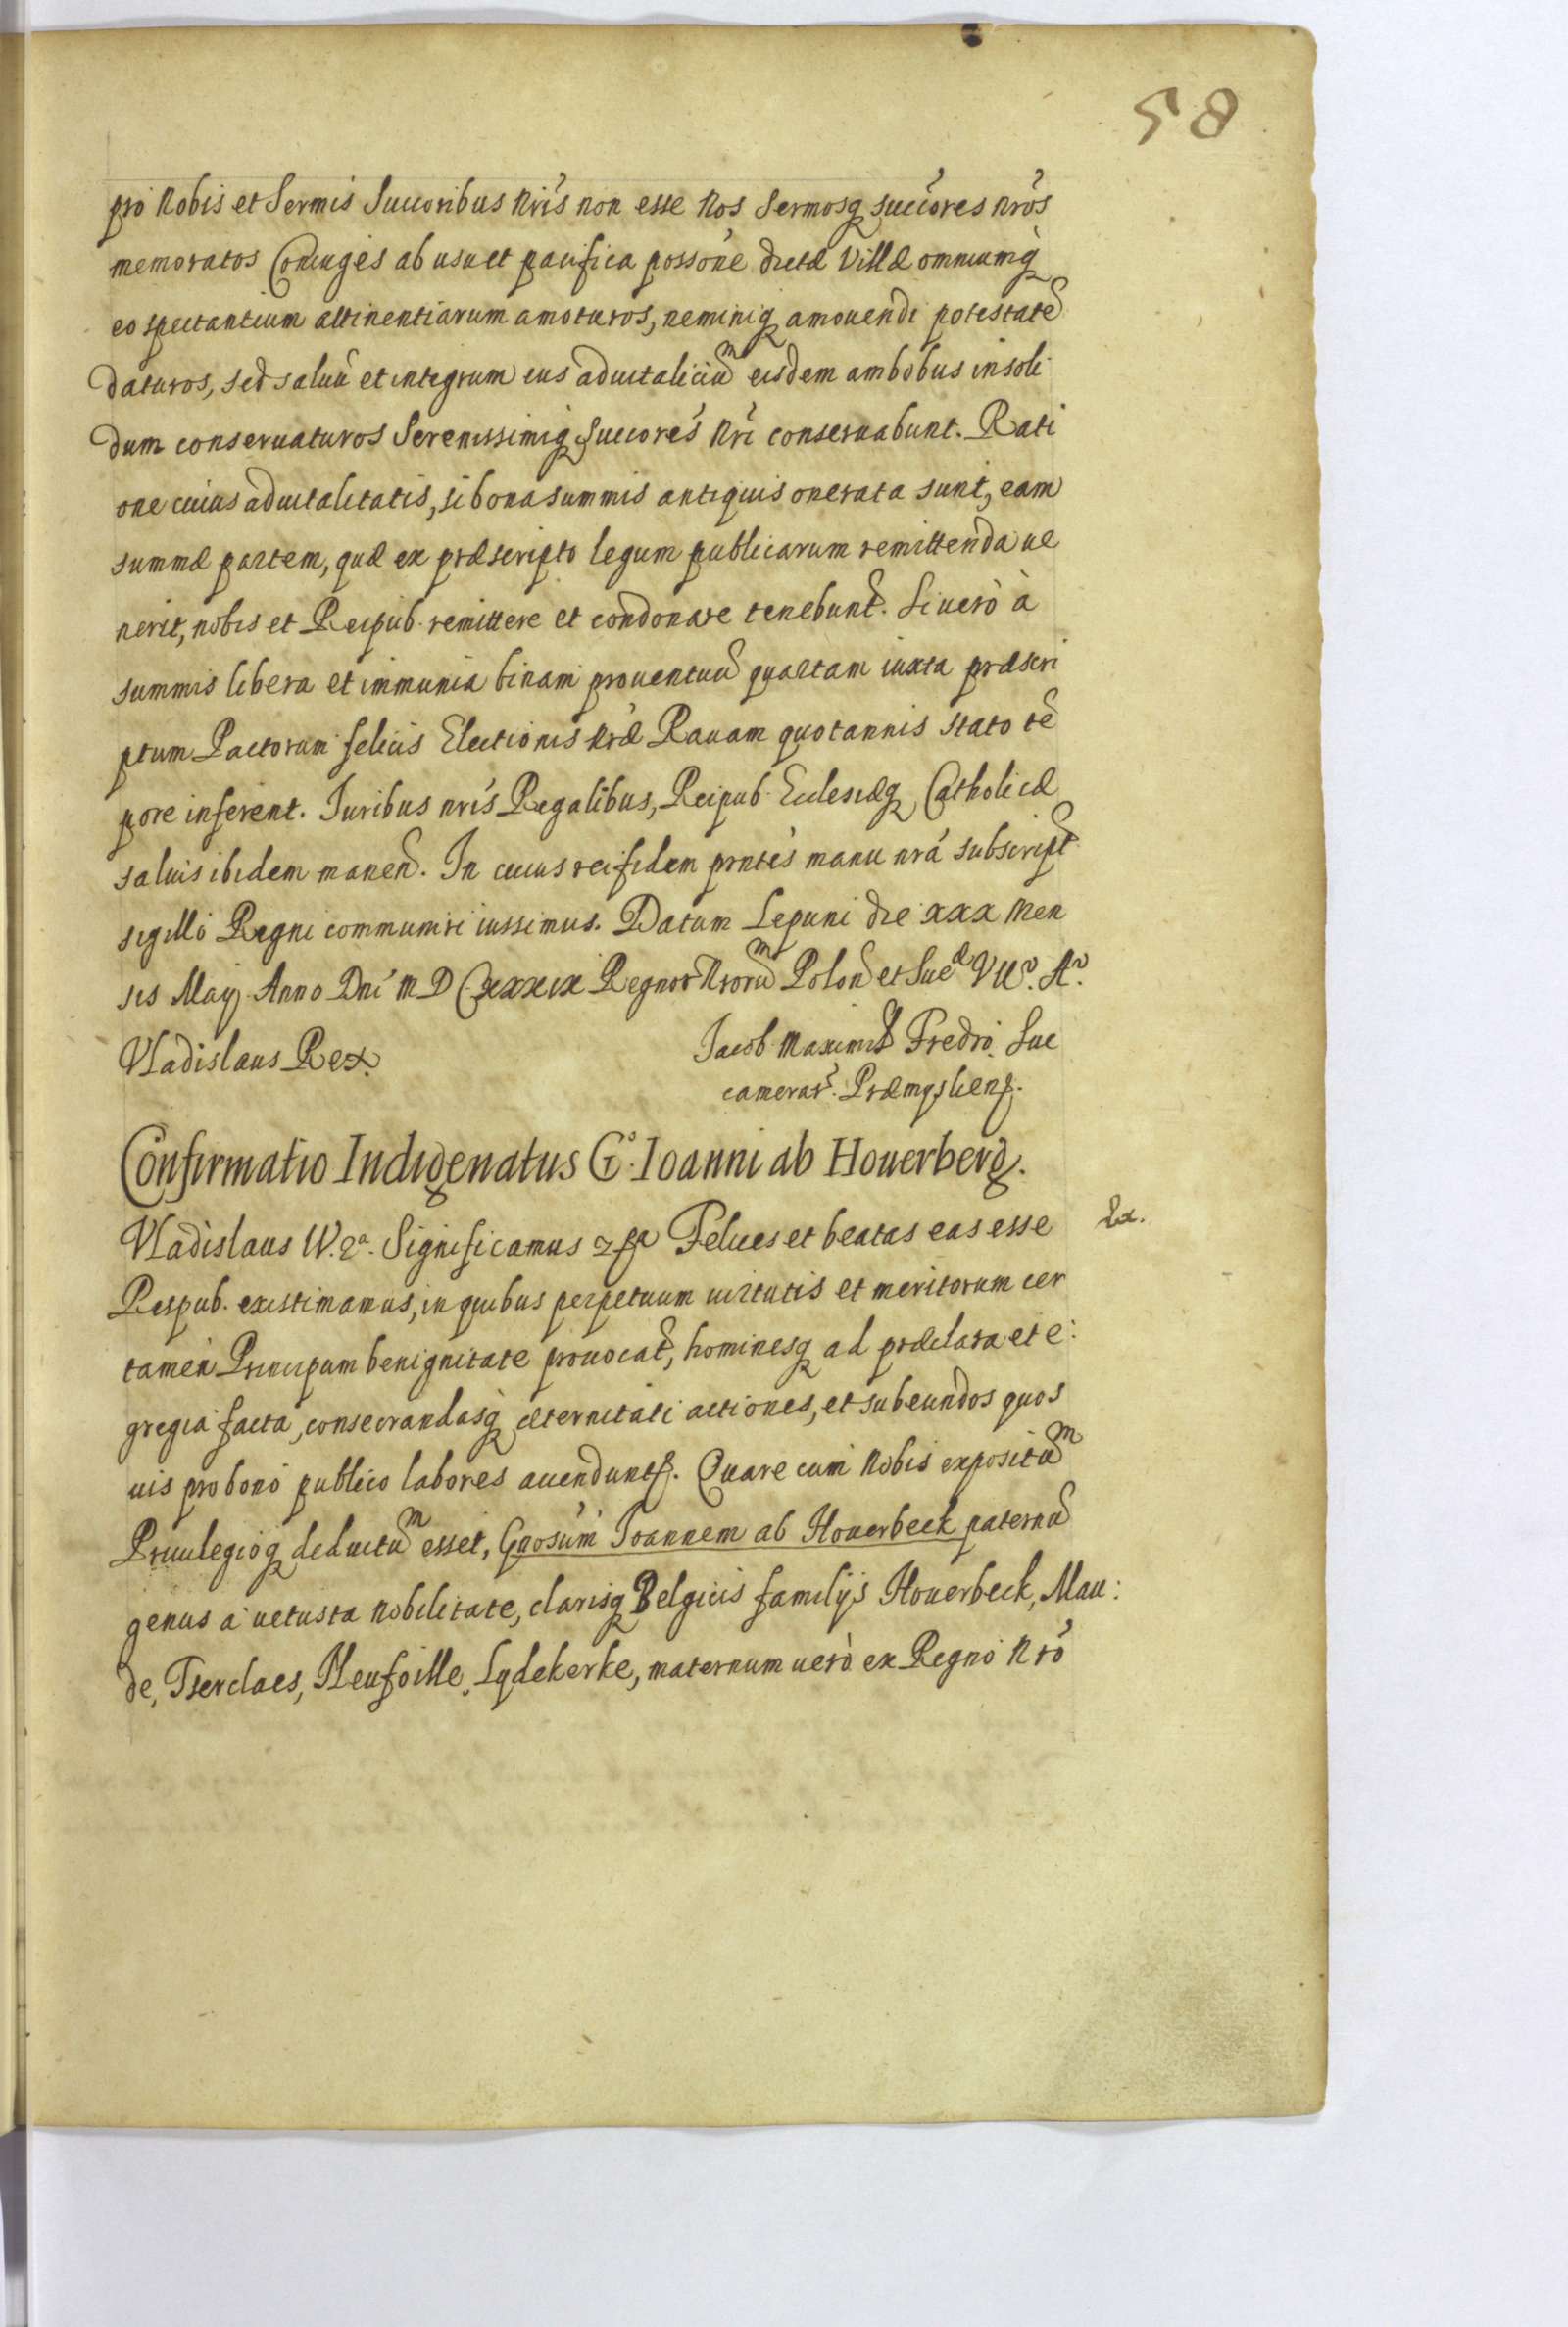 58
pro Nobis et Sermis Succoribus Nris non esse Nos Sermosq succores nros
memoratos Coniuges ab usu et pacifica possone dictæ Villæ omniumq
eo spectantium attinentiarum amoturos, neminiq amouendi potestate
daturos, sed saluu et integrum ius aduitalicium eisdem ambobus insoli
dum conseruaturos Serenissimiq Succores Nri conseruabunt. Rati
one cuius aduitalitatis, si bona summis antiquis onerata sunt, eam
summæ partem, quæ ex præscripto legum publicarum remittenda ue
nerit, nobis et Reipub. remittere et condonare tenebunt. Si uerò à
summis libera et immunia binam prouentuu quartam iuxta præscri
ptum Pactorum felicis Electionis Nræ Rauam quotannis stato te
pore inferent. Iuribus nris Regalibus, Reipub. Ecclesiæq Catholicæ
saluis ibidem manen. In cuius rei fidem prntes manu nra subscript
sigillo Regni communiri iussimus. Datum Lepuni die xxx Men
sis Maij Anno Dni M D CXXXIX Regnor Nrorum Polon et Sued VII. A.
Vladislaus Rex.
Jacob Maximil Fredro. Suc
camerar. Præmysliens.
Confirmatio Indigenatus G. Ioanni ab Houerberg.
Vladislaus IV. Significamus Felices et beatas eas esse
Lx.
Respub. existimamus, in quibus perpetuum uirtutis et meritorum cer
tamen Principum benignitate prouocat, hominesq ad præclara et e:
gregia facta, consecrandasq æternitati actiones, et subeundos quos
uis pro bono publico labores accenduntr. Quare cum Nobis expositum
Priuilegioq deductum esset, Gnosum Ioannem ab Houerbeck paternu
genus a uetusta nobilitate, clarisq Belgicis familijs Houerbeck, Mau:
de, Tserclaes, Neufoille, Lydekerke, maternum uerò ex Regno Nro